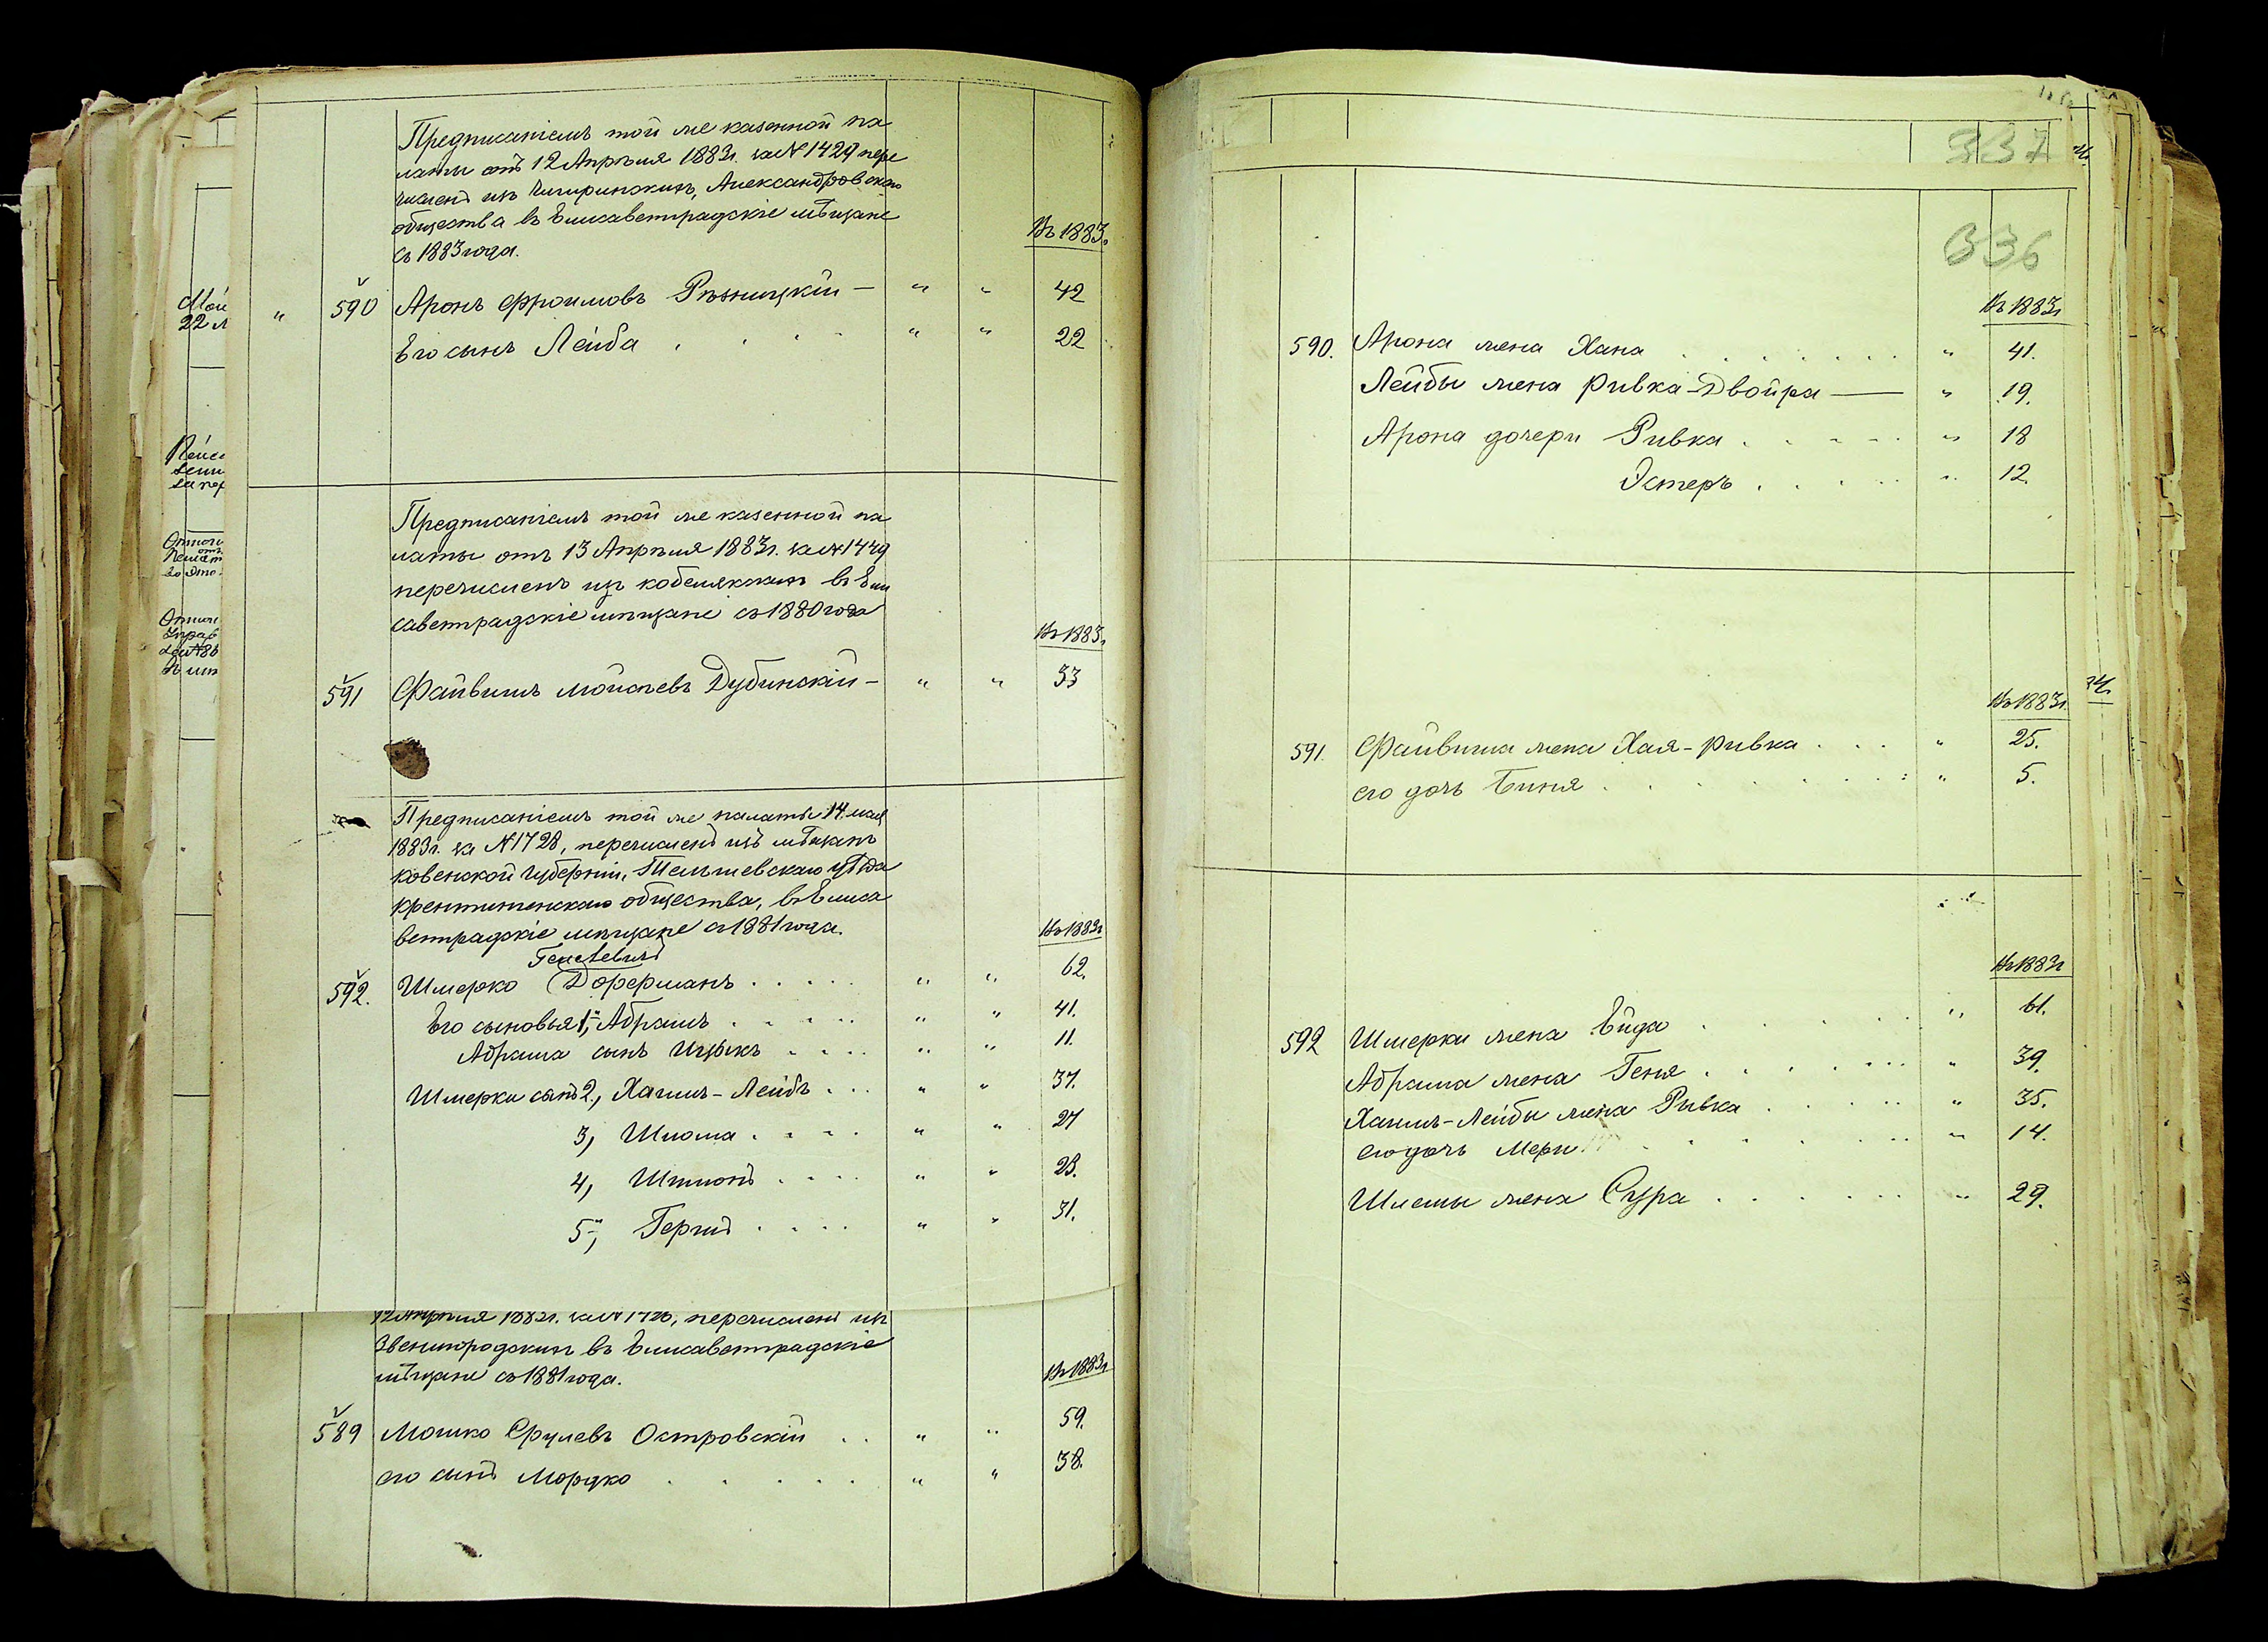 Предписаніемъ той же казенной па
латы отъ 12 Апрѣля 1883г. за № 1429 пере
численъ изъ Чигиринскихъ, Александровскаго
общества въ Елисаветградскіе мѣщане
съ 1883 года.
Въ 1883г.
„ 590 Аронъ Фроимовъ Рѣзницкій — „ „ 42
Его сынъ Лейба „ „ 22
Предписаніемъ той же казенной па
латы отъ 13 Апрѣля 1883г. за № 1449
перечисленъ изъ кобелякскихъ въ Ели
саветградскіе мѣщане съ 1880 года
Въ 1883г.
591 Файвишъ Мойсѣевъ Дубинскій — „ „ 33
Предписаніемъ той же палаты 14 мая
1883г. за № 1728, перечисленъ изъ мѣщанъ
ковенской губерніи, Тельшевскаго уѣзда
общества, въ Елиса
ветградскіе мѣщане съ 1881 года.
Въ 1883г
592. Шмерко Доферманъ . . . . . „ „ 62.
Его сыновья 1, Абрамъ . . . . . „ „ 41.
Абрама сынъ Ицыкъ . . . . „ „ 11.
Шмерки сынъ 2, Хаимъ-Лейбъ . . . „ „ 37.
3, Шлема . . . . „ „ 27
4, . . . . „ „ 23.
5, Герш . . . . „ „ 31.
12 Апрѣля 1882г. за № 1726, перечисленъ изъ
Звенигородскихъ въ Елисаветградскіе
мѣщане съ 1881 года.
Въ 1883г
589 Мошко Срулевъ Островскій . . „ „ 59.
его сынъ Мордко . . . . . „ „ 38.
337
336
Въ 1883г
590. Арона жена Хана . . . . . . . „ 41.
Лейбы жена Ривка-Двойра — „ 19.
Арона дочери Ривка . . . . . „ 18
Эстеръ . . . . . „ 12.
Въ 1883г.
591. Файвиша жена Хая-Ривка . . . „ 25.
его дочь Биня . . . . . . . „ 5.
Въ 1883г
592 Шмерки жена Ейда . . . . . „ 61.
Абрама жена Геня . . . . . „ 39.
Хаимъ-Лейбы жена Рывка . . . . . „ 35.
его дочь Мери . . . . . . „ 14.
Шлемы жена Сура . . . . . . „ 29.